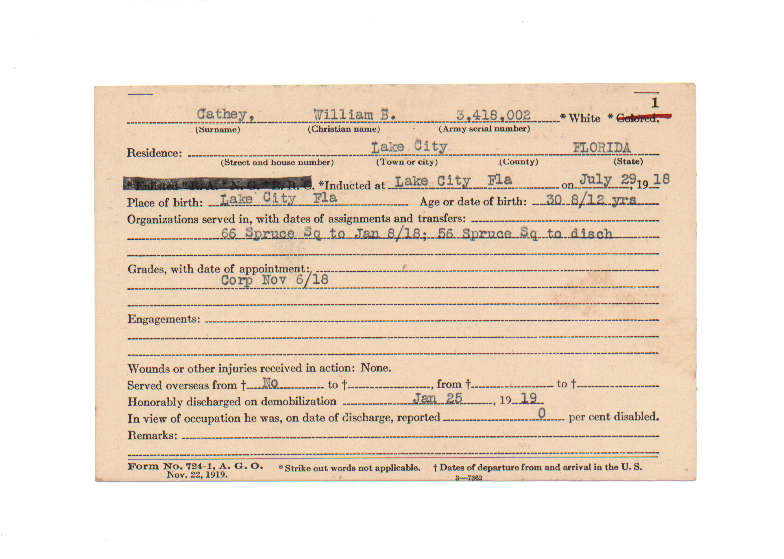 1
Cathey, William B. 3,418,002 *White *Colored.
(Surname) (Christian name) (Army serial number)
Residence: Lake City FLORIDA
(Street and house number) (Town or city) (County) (State)
*Enlisted *R. A. *N. G. *E. R. C. *Inducted at Lake City Fla on July 29, 19 18
Place of birth: Lake City Fla Age or date of birth: 30 8/12 yrs
Organizations served in, with dates of assignments and transfers:
66 Spruce Sq to Jan 8/18; 56 Spruce Sq to disch
Grades, with date of appointment:
Corp Nov 6/18
Engagements:
Wounds or other injuries received in action: None.
Served overseas from † No to †, from † to †
Honorably discharged on demobilization Jan 25, 19 19
In view of occupation he was, on date of discharge, reported 0 per cent disabled.
Remarks:
Form No. 724-1, A. G. O. *Strike out words not applicable. † Dates of departure from and arrival in the U. S.
Nov. 22, 1919. 3—7362